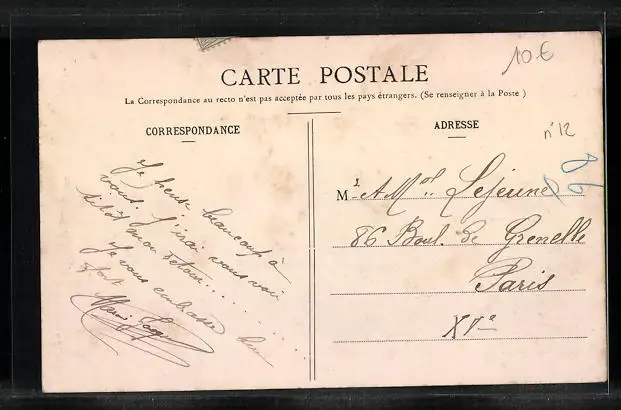 10 €
CARTE POSTALE
La Correspondance au recto n'est pas acceptée par tous les pays étrangers. (Se renseigner à la Poste)
CORRESPONDANCE
Je pense beaucoup à
vous. J'irai vous voir
sitôt mon retour.......
Je vous embrasse bien
fort
ADRESSE
n° 12
86
Mr et Mme Lejeune
86 Boul. de Grenelle
Paris
XVe